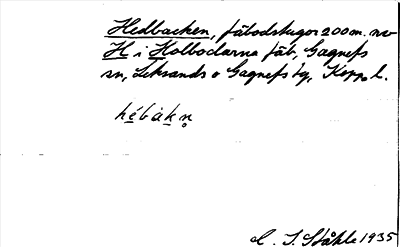 Hedbacken, fäbodskugor 200 m. nv
H i Holbodarna fäb, Gagnefs
sn, Leksands o Gagnefs tg, Kopp. l.
hébàkn̥
C. I. Ståhle 1935